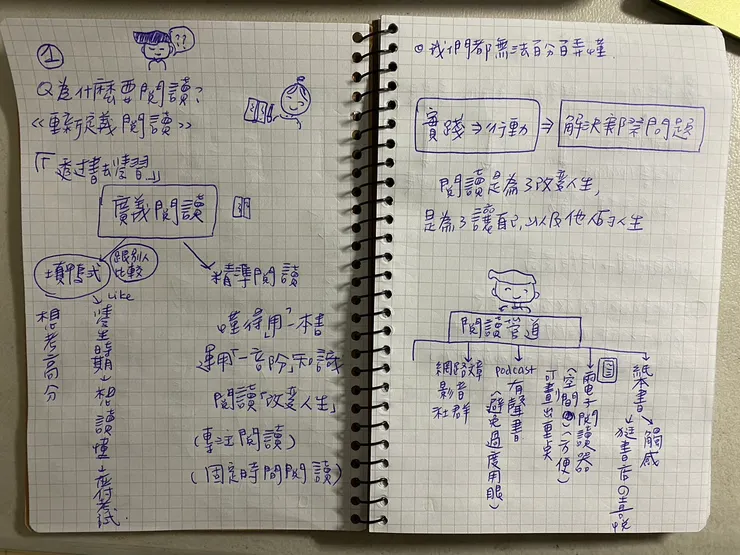 ①
??
Q為什麼要閱讀?
《重新定義閱讀》
「透過書去學習」
廣義閱讀
填鴨式
跟別人
比較
精準閱讀
Like
想考高分
學生時期→想讀懂→應付考試
懂得用「一本書
運用「一部份」知識
閱讀「改變人生」
(專注閱讀)
(固定時間閱讀)
◎我們都無法百分百弄懂.
實踐⇒行動⇒解決實際問題
閱讀是為了改變人生,
是為了讓自己,以及他人的人生
閱讀管道
網路文章
影音
社群
podcast
有聲書
(避免過度用眼)
電子閱讀器
(空間)(方便)
可畫出重點
紙本書
觸感
逛書店の喜悅